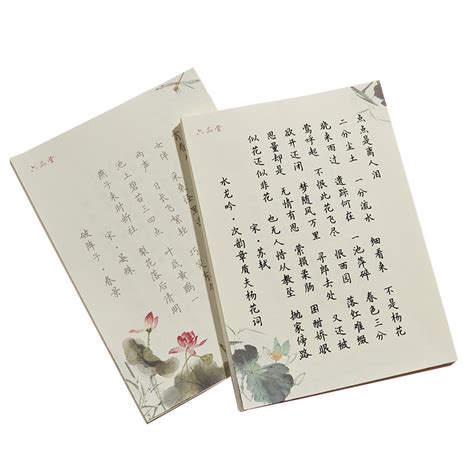 六品堂
破阵子·春景
宋·晏殊
燕子来时新社 梨花落后清明
池上碧苔三四点 叶底黄鹂一
声 日长飞絮轻
女伴
六品堂
水龙吟·次韵章质夫杨花词
宋·苏轼
似花还似非花 也无人惜从教坠 抛家傍路
思量却是 无情有思 萦损柔肠 困酣娇眼
欲开还闭 梦随风万里 寻郎去处 又还被
莺呼起 不恨此花飞尽 恨西园 落红难缀
晓来雨过 遗踪何在 一池萍碎 春色三分
二分尘土 一分流水 细看来 不是杨花
点点是离人泪